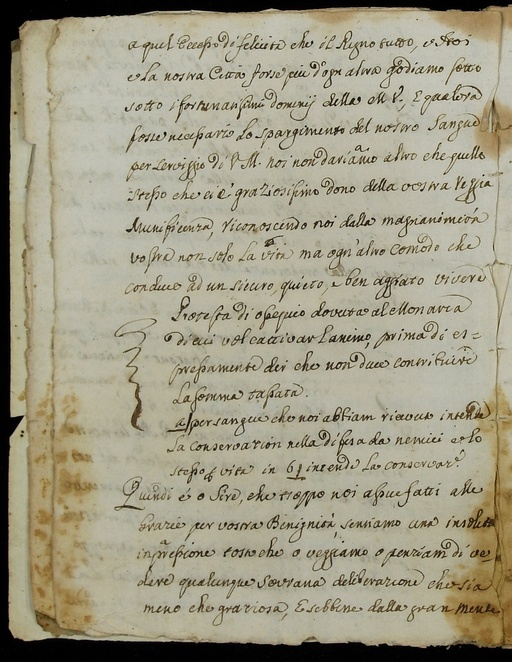 a quel Eccesso di felicità che il Regno tutto, e Noi
e la nostra Città forse più d'ogn altra godiamo sotto
sotto i fortunatissimi dominij della M. V., E qualora
fosse necessario lo spargimento del nostro Sangue
per servizio di V. M. noi non dariamo altro che quello
stesso che ci è graziosissimo dono della vostra Reggia
Munificenza, riconoscendo noi dalla magnanimità
vostra non solo la vita ma ogn'altro comodo che
conduce ad un sicuro, quieto, e ben agiato vivere
Protesta di ossequio dovuta al Monarca
di cui vol cattivar l'animo, prima di es=
pressamente dir che non deve contribuire
la somma tassata.
a per sangue che noi abbiam ricevuto intende
la conservazion nella difesa da nemici e lo
stesso vita in intende la conservar.
Quindi è o Sire, che troppo noi assuefatti alle
Grazie per vostra Benignità, sentiamo una insolita
impressione tosto che o veggiamo o penziam di ve=
dere qualunque Sovrana deliberazione che sia
meno che graziosa, E sebbene dalla gran Mente